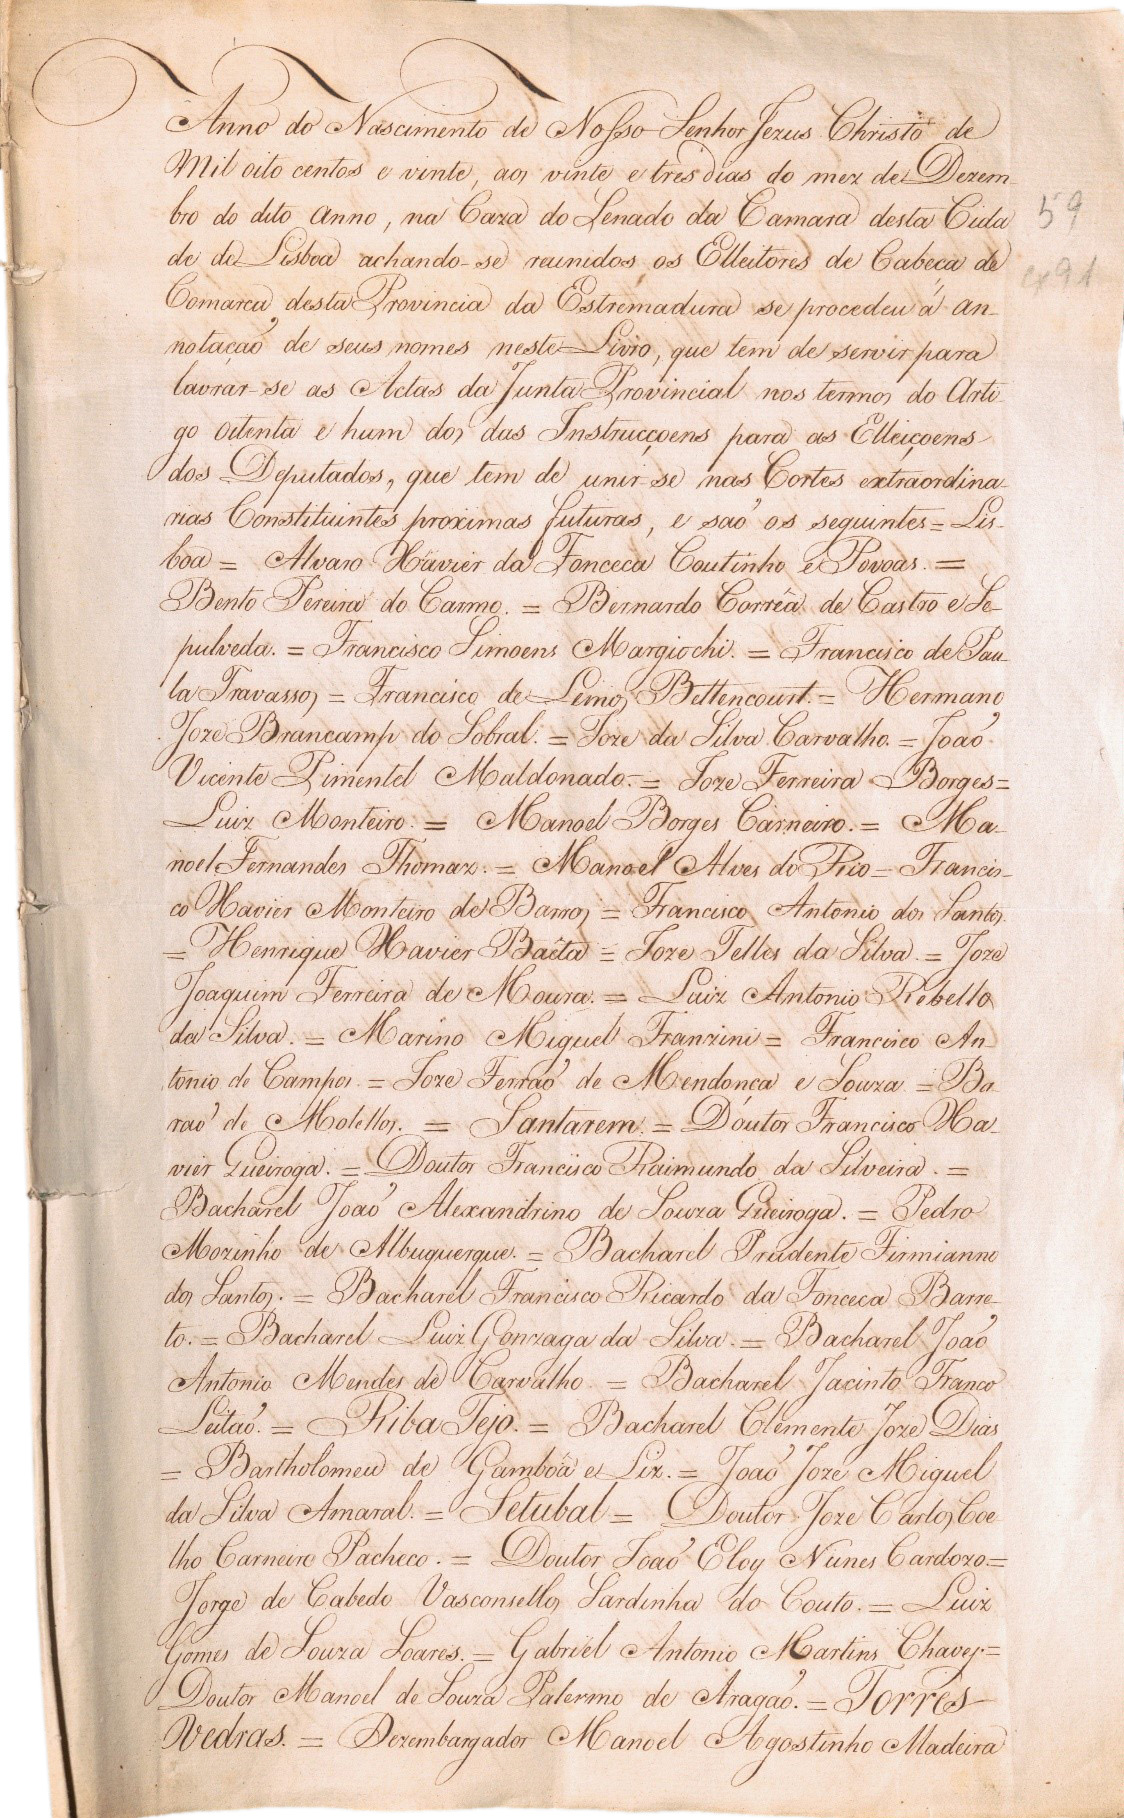 Anno do Nascimento de Nosso Senhor Jezus Christo de
Mil oito centos e vinte, aos vinte e tres dias do mez de Dezem-
bro do dito anno, na Caza do Senado da Camara desta Cida
de de Lisboa achando-se reunidos os Elleitores de Cabeça de
Comarca desta Provincia da Estremadura se procedeu á an-
notação de seus nomes neste Livro, que tem de servir para
lavrar-se as Actas da Junta Provincial nos termos do Arti-
go oitenta e hum dos das Instrucçoens para as Elleiçoens
dos Deputados, que tem de unir-se nas Cortes extraordina-
rias Constituintes proximas futuras, e são os seguintes = Lis-
boa = Alvaro Xavier da Fonceca Coutinho e Povoas. =
Bento Pereira do Carmo. = Bernardo Corrêa de Castro e Se-
pulveda. = Francisco Simoens Margiochi. = Francisco de Pau-
la Travassos = Francisco de Lemos Bettencourt. = Hermano
Joze Brancamp do Sobral. = Joze da Silva Carvalho. = João
Vicente Pimentel Maldonado. = Joze Ferreira Borges =
Luiz Monteiro. = Manoel Borges Carneiro. = Ma-
noel Fernandes Thomaz. = Manoel Alves do Rio = Francis-
co Xavier Monteiro de Barros = Francisco Antonio dos Santos
= Henrique Xavier Baêta = Joze Telles da Silva. = Joze
Joaquim Ferreira de Moura. = Luiz Antonio Rebello
da Silva. = Marino Miguel Franzini = Francisco An-
tonio de Campos. = Joze Ferrão de Mendonça e Souza = Ba-
rão de Molellos. = Santarem. = Doutor Francisco Xa-
vier Gueiroga. = Doutor Francisco Raimundo da Silveira. =
Bacharel João Alexandrino de Souza Queiroga. = Pedro
Mozinho de Albuquerque. = Bacharel Prudente Firmianno
dos Santos. = Bacharel Francisco Ricardo da Fonceca Barre-
to. = Bacharel Luiz Gonzaga da Silva. = Bacharel João
Antonio Mendes de Carvalho. = Bacharel Jacinto Franco
Leitão. = Riba Tejo. = Bacharel Clemente Joze Dias
= Bartholomeu de Gambôa e Liz. = João Joze Miguel
da Silva Amaral. = Setubal = Doutor Joze Carlos Coe
lho Carneiro Pacheco. = Doutor João Eloy Nunes Cardozo. =
Jorge de Cabedo Vasconsellos Sardinha do Couto. = Luiz
Gomes de Souza Soares. = Gabriel Antonio Martins Chaves =
Doutor Manoel de Souza Palermo de Aragão. = Torres
Vedras. = Dezembargador Manoel Agostinho Madeira
59